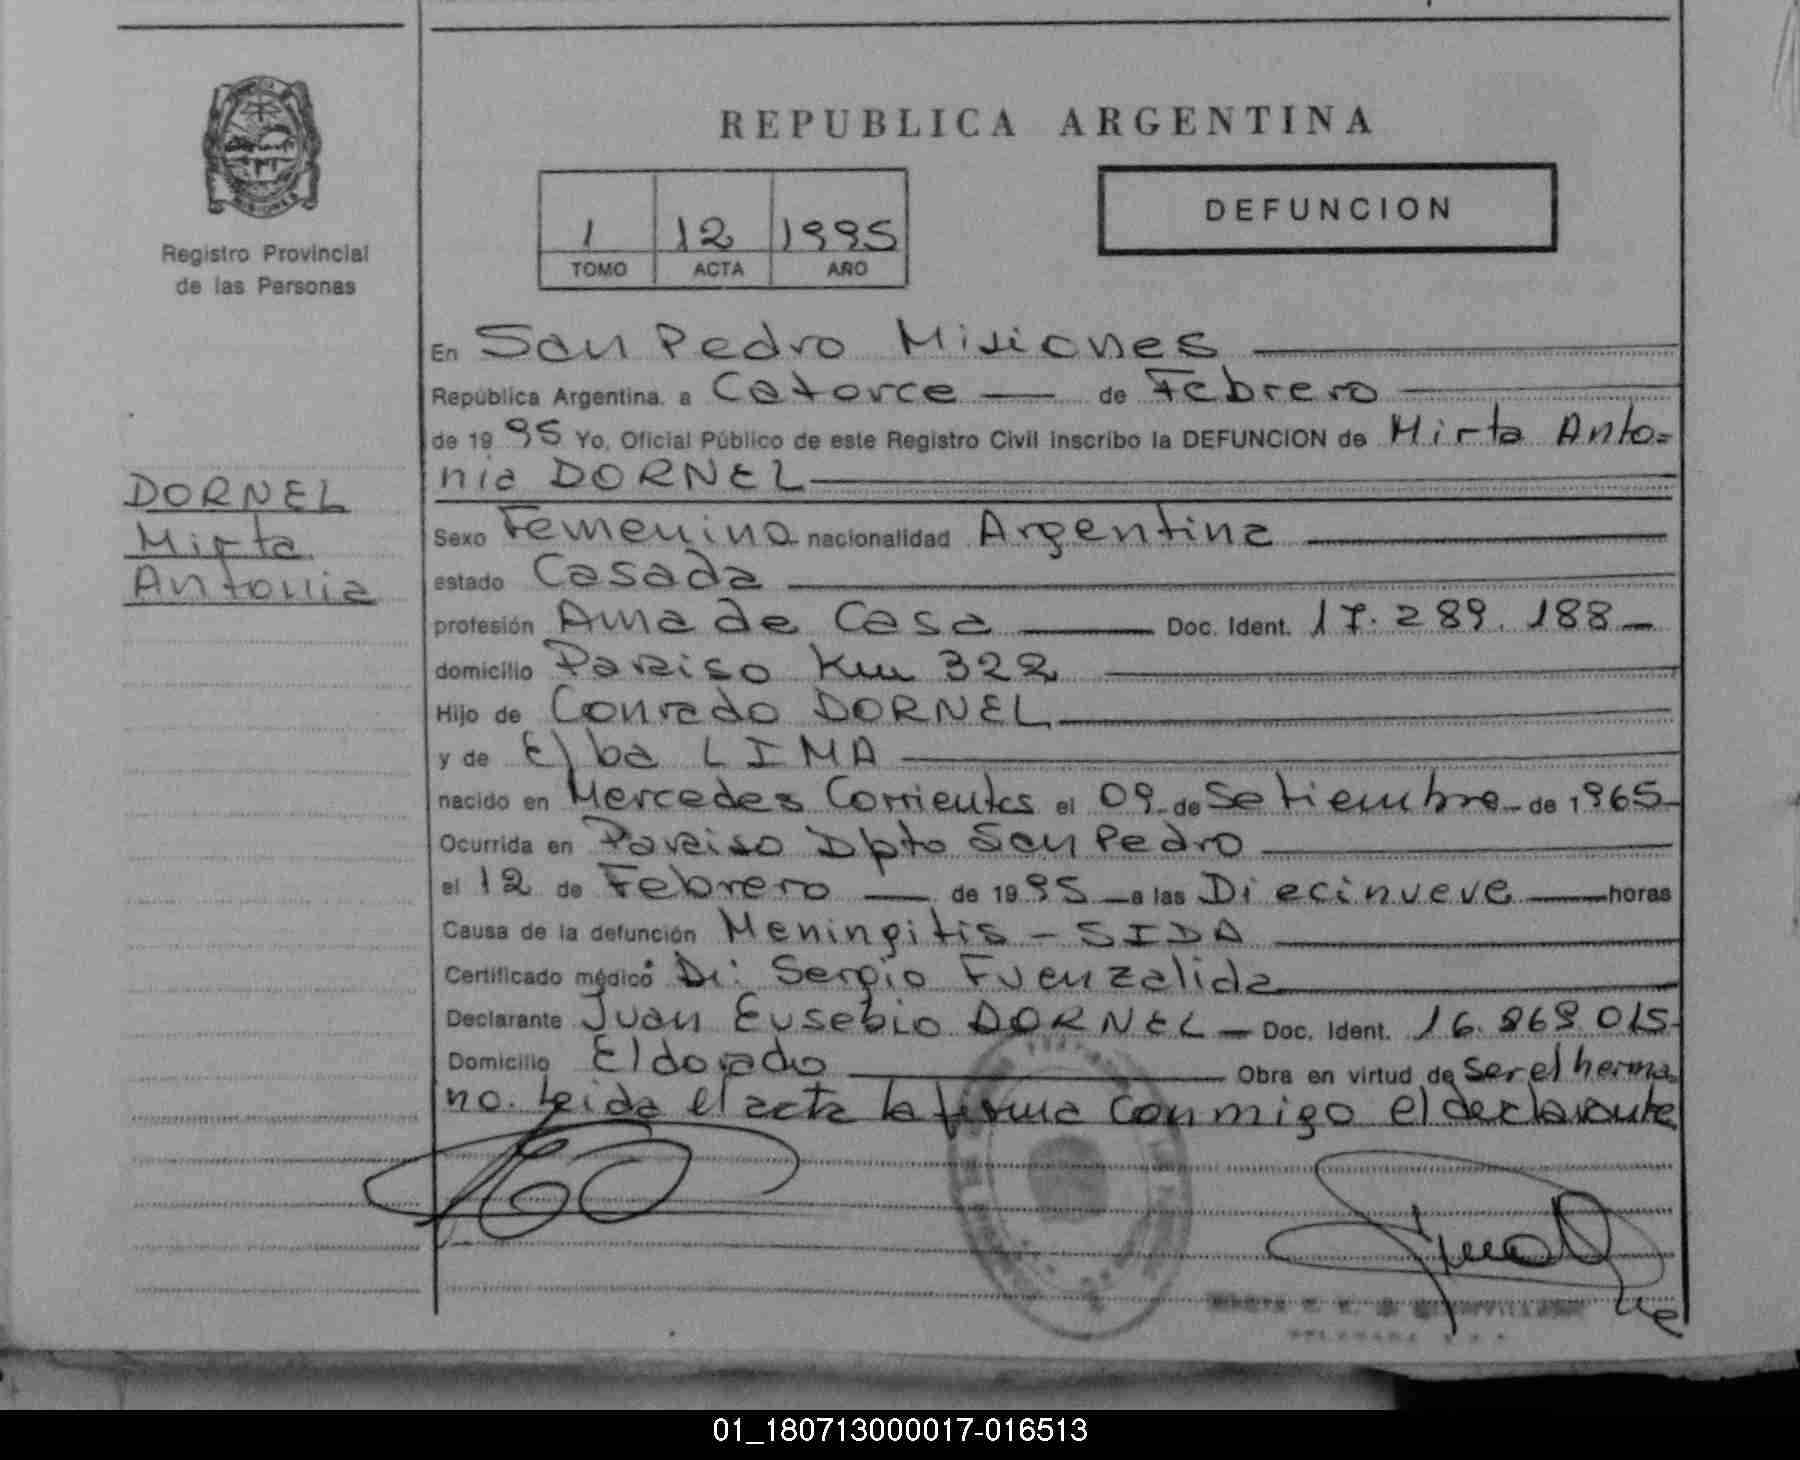 REPUBLICA ARGENTINA
MISIONES
Registro Provincial
de las Personas
1 12 1995
TOMO ACTA AÑO
DEFUNCION
En San Pedro Misiones
República Argentina, a Catorce de Febrero
de 19 95 Yo, Oficial Público de este Registro Civil inscribo la DEFUNCION de Mirta Anto=
nia DORNEL
DORNEL
Mirta
Antonia
Sexo Femenino nacionalidad Argentina
estado Casada
profesión Ama de Casa Doc. Ident. 17.289.188
domicilio Paraiso Km 322
Hijo de Conrado DORNEL
y de Elba LIMA
nacido en Mercedes Corrientes el 09 de Setiembre de 1965
Ocurrida en Paraiso Dpto San Pedro
el 12 de Febrero de 19 95 a las Diecinueve horas
Causa de la defunción Meningitis - SIDA
Certificado médico Dr: Sergio Fuenzalida
Declarante Juan Eusebio DORNEL Doc. Ident. 16.869.015
Domicilio Eldorado Obra en virtud de ser el herma
no. Leida el acta la firma conmigo el declarante
01_180713000017-016513